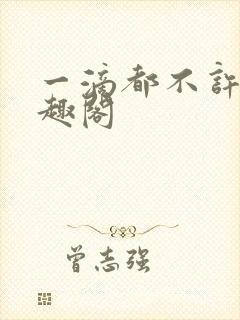 一滴都不许
趣阁
曾志强